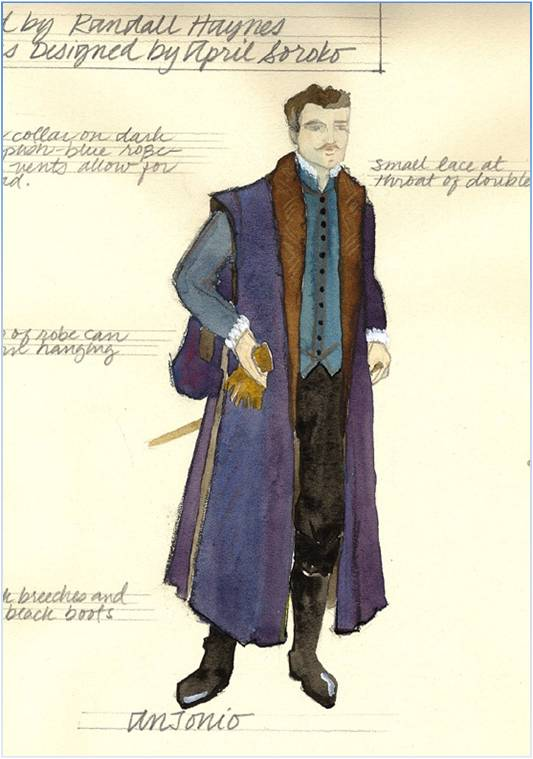 by Randall Haynes
s Designed by April Soroko
collar on dark
blue robe
vents allow for
small lace at
throat of double
of robe can
hanging
k breeches and
black boots
Antonio